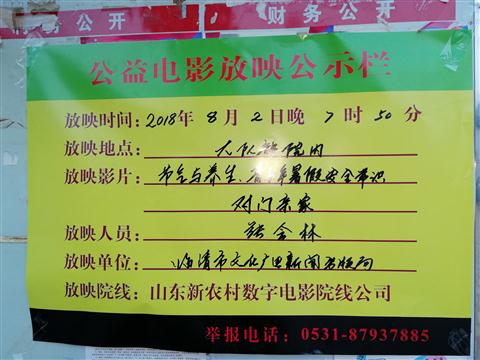 务公开
财务公开
公益电影放映公示栏
放映时间:2018年8月2日晚7时50分
放映地点: 大队部院内
放映影片: 节气与养生、青少年暑假安全常识
对门亲家
放映人员: 张金林
放映单位: 临清市文化广电新闻出版局
放映院线:山东新农村数字电影院线公司
举报电话:0531-87937885